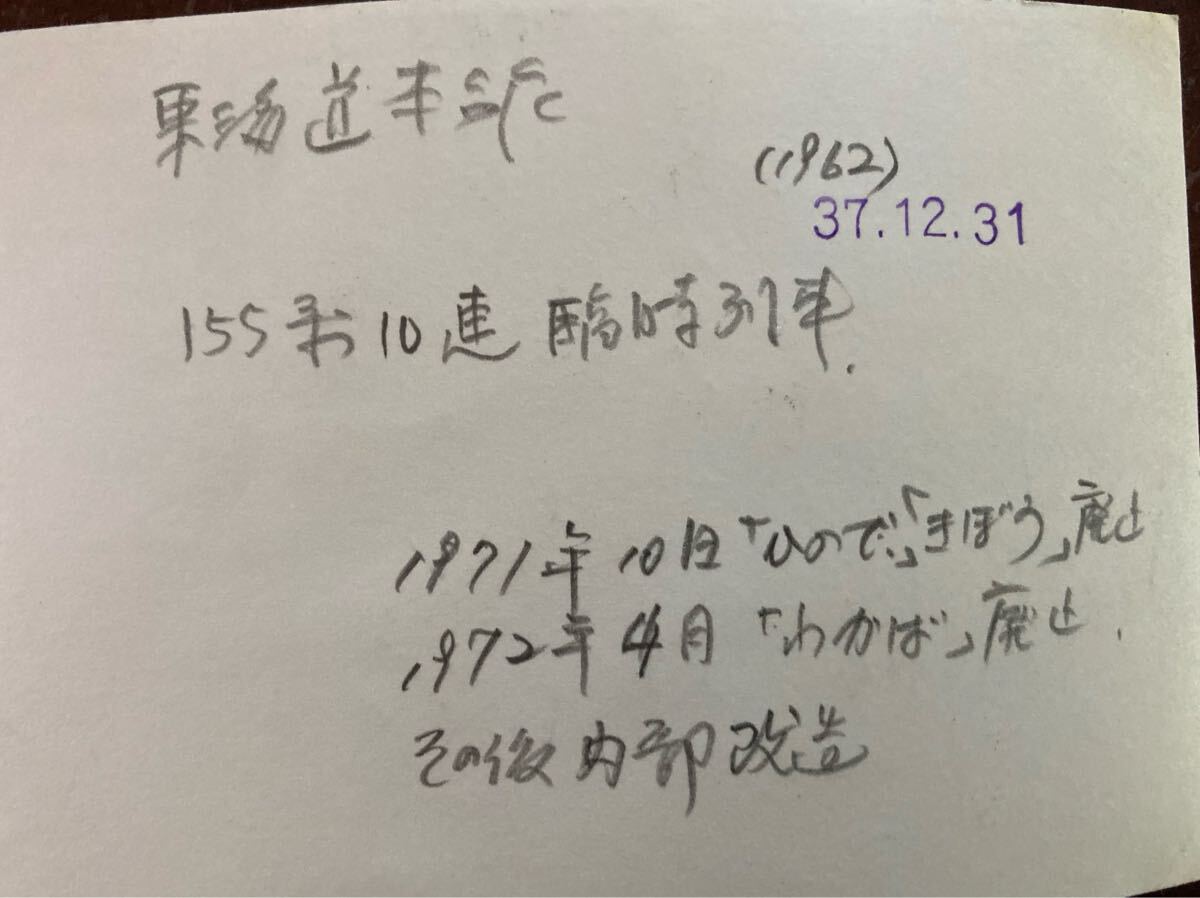 東海道本線
(1962)
37.12.31
155系10連 臨時列車.
1971年10月「ひので」「きぼう」廃止
1972年4月「わかば」廃止.
その後内部改造